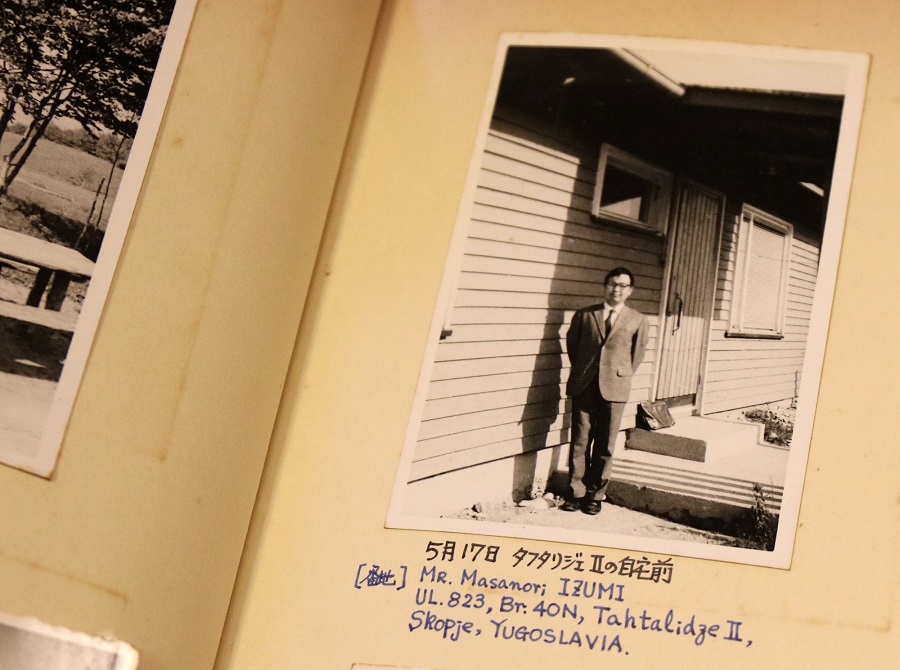 5月17日 タフタリジェⅡの自宅前
[番地] MR. Masanori IZUMI
UL. 823, Br. 40N, Tahtalidze II,
Skopje, YUGOSLAVIA.